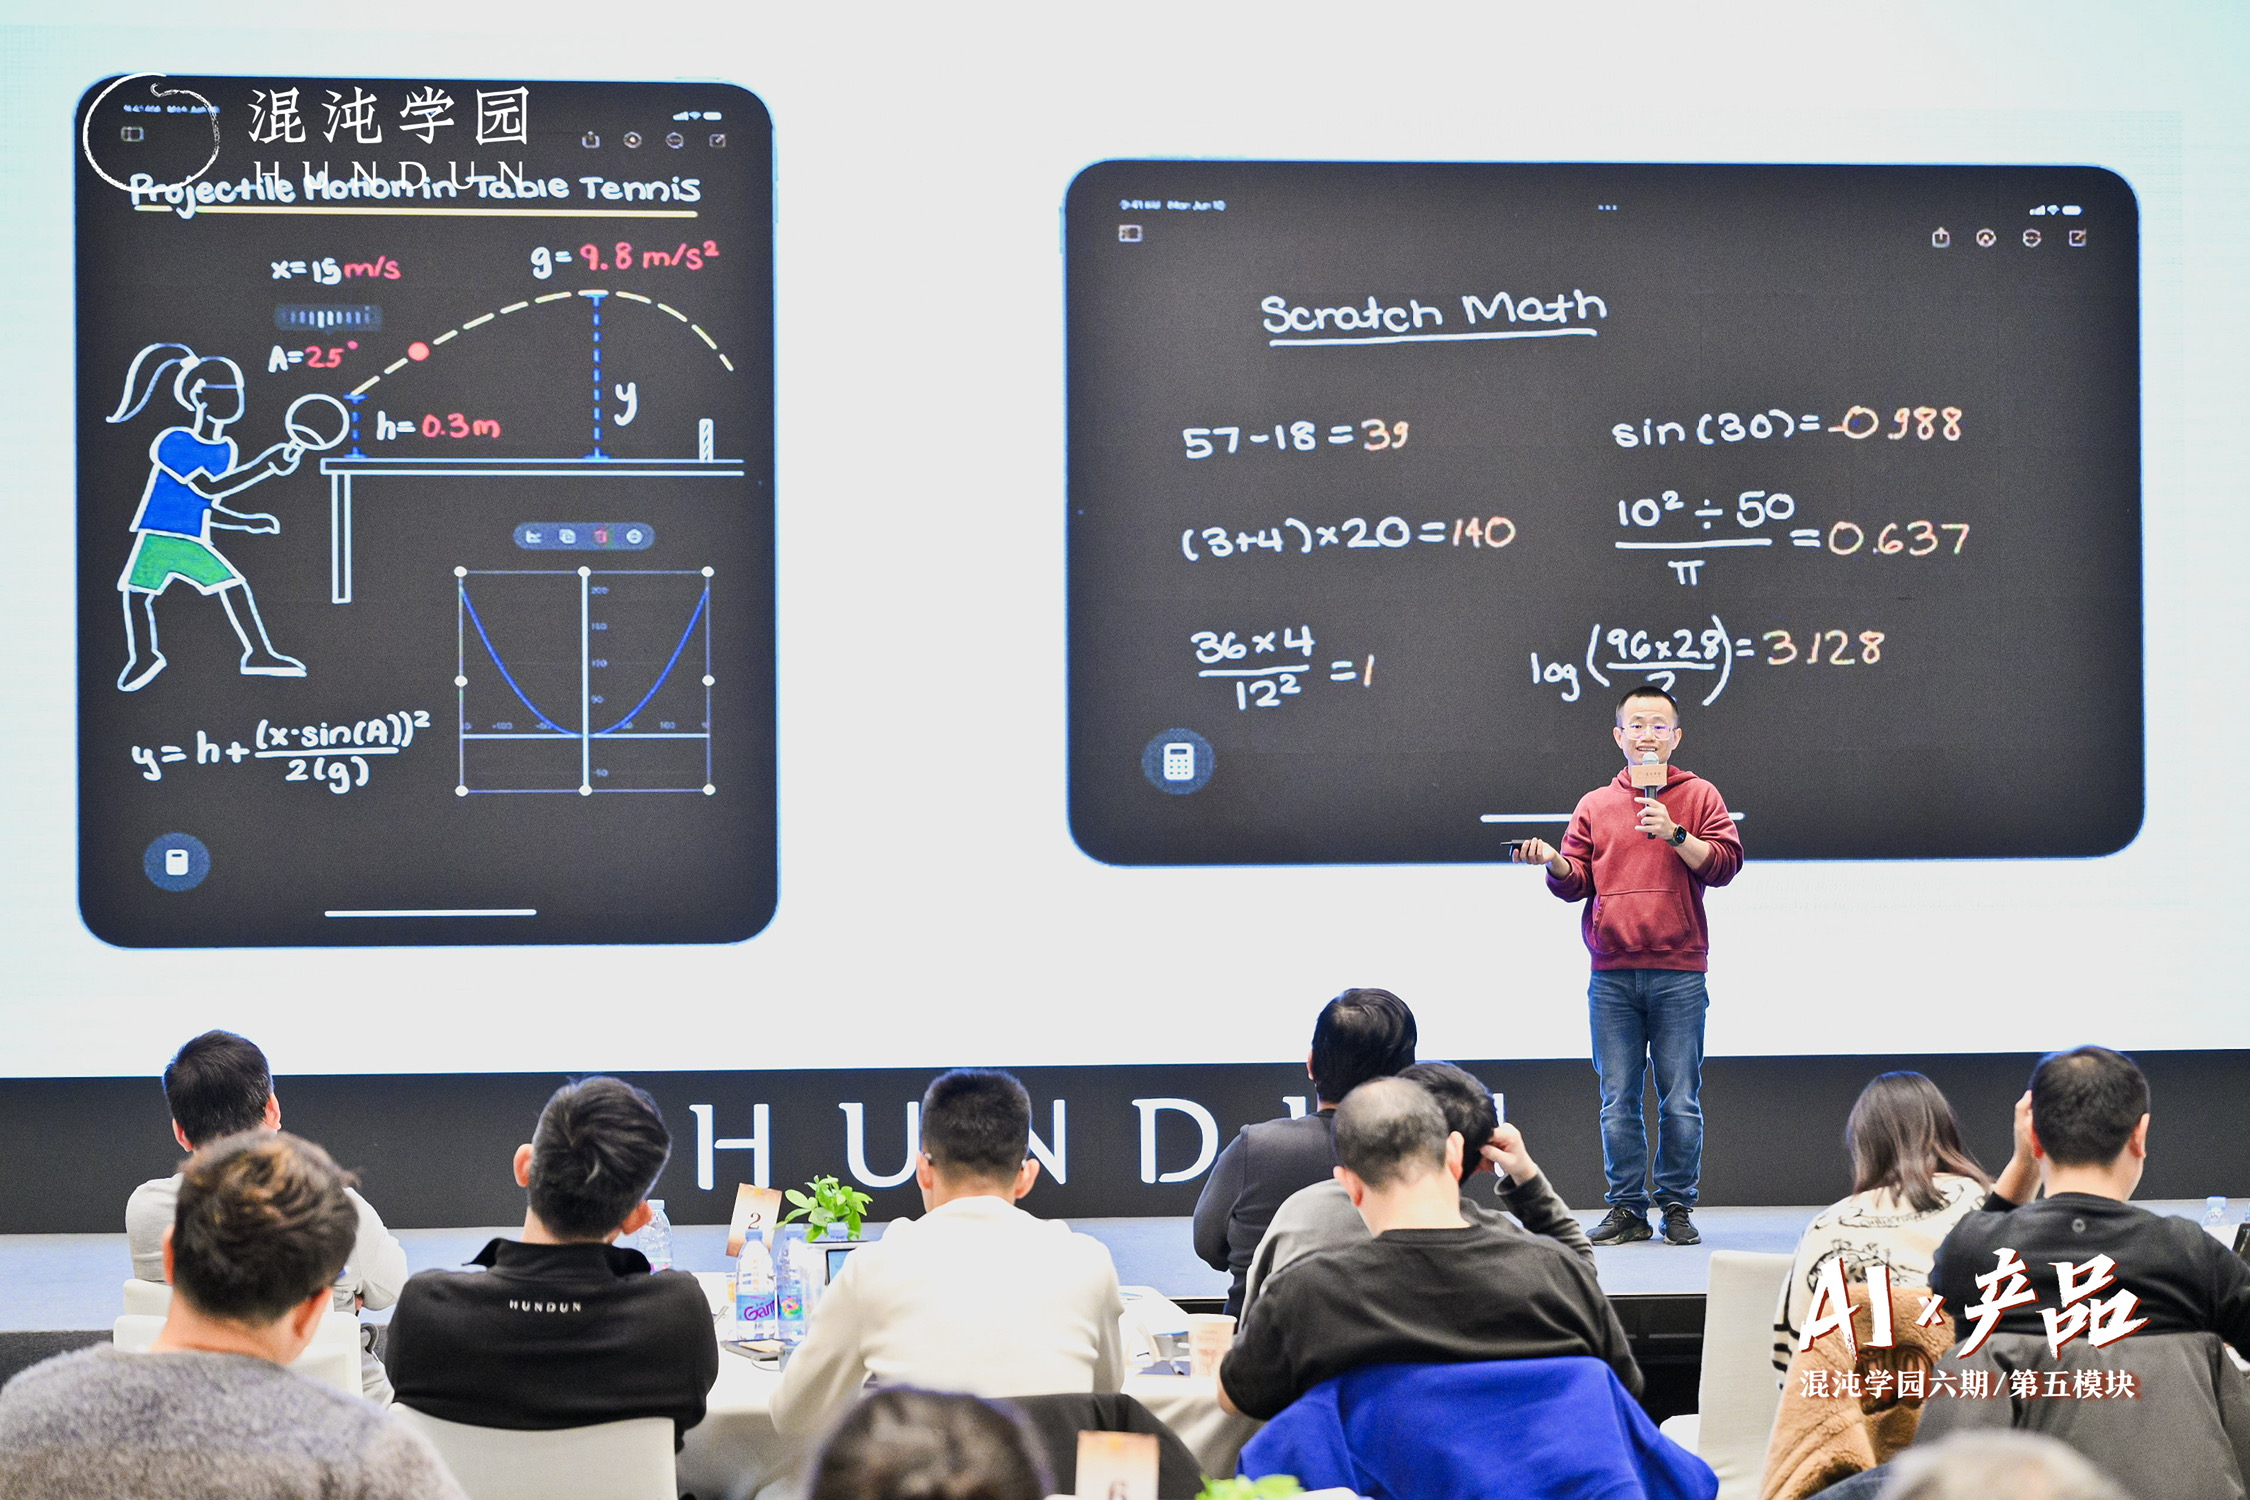 混沌学园
HUNDUN
Projectile Motion in Table Tennis
x=15m/s
g=9.8 m/s²
A=25°
h=0.3m
y
y=h+(x·sin(A))²
2(g)
200
150
50
-50
9:41 AM Mon Jun 10
Scratch Math
57-18=39
sin(30)=-0.988
(3+4)×20=140
10²÷50
=0.637
π
36×4
=1
12²
log(96×28)=3.128
HUNDUN
2
HUNDUN
6
AI×产品
混沌学园六期/第五模块